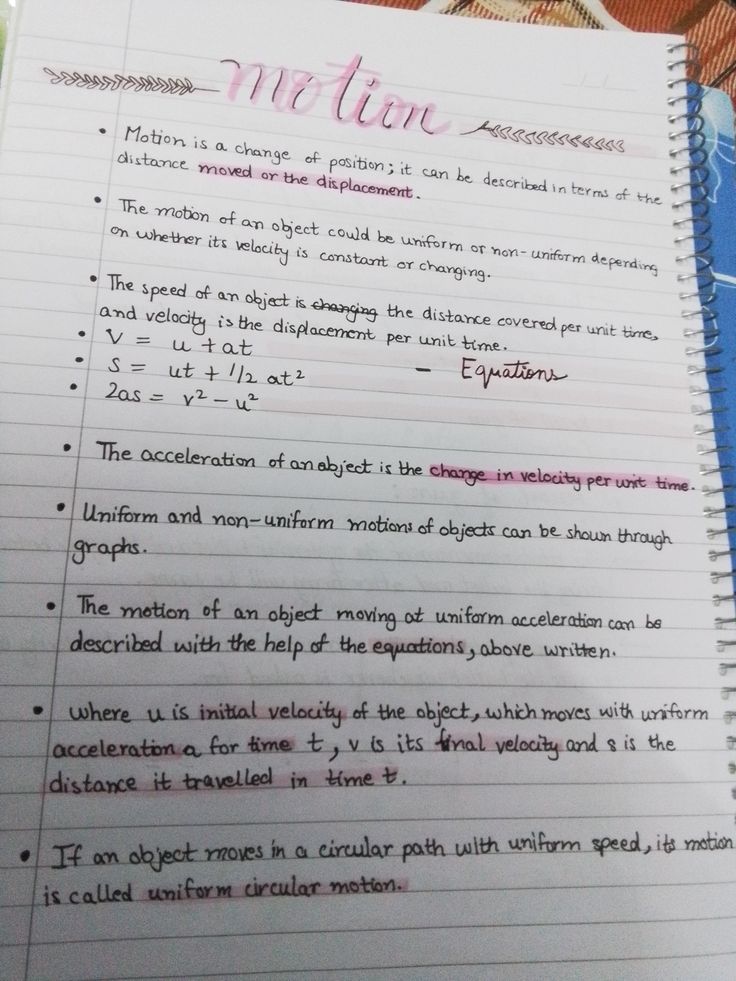 motion
• Motion is a change of position; it can be described in terms of the
distance moved or the displacement.
• The motion of an object could be uniform or non-uniform depending
on whether its velocity is constant or changing.
• The speed of an object is changing the distance covered per unit time,
and velocity is the displacement per unit time.
• V = u + at
• S = ut + 1/2 at²
- Equations
• 2as = v² - u²
• The acceleration of an object is the change in velocity per unit time.
• Uniform and non-uniform motions of objects can be shown through
graphs.
• The motion of an object moving at uniform acceleration can be
described with the help of the equations, above written.
• where u is initial velocity of the object, which moves with uniform
acceleration a for time t, v is its final velocity and s is the
distance it travelled in time t.
• If an object moves in a circular path with uniform speed, its motion
is called uniform circular motion.